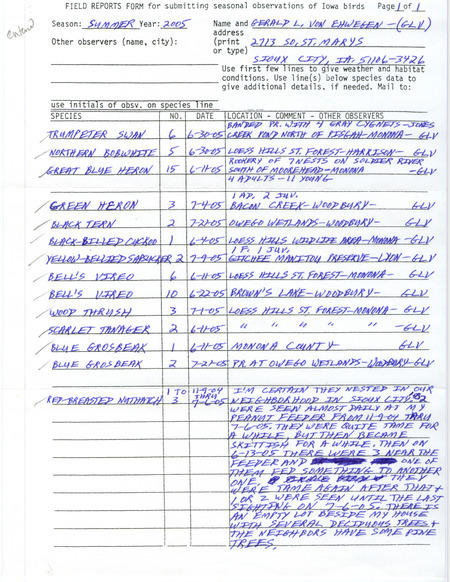 FIELD REPORTS FORM for submitting seasonal observations of Iowa birds Page 1 of 1
Season: SUMMER Year: 2005 Name and GERALD L. VON EHWEGEN - (GLV)
address
Other observers (name, city): (print 2713 SO. ST. MARYS
or type)
SIOUX CITY, IA. 51106-3426
Use first few lines to give weather and habitat
conditions. Use line(s) below species data to
give additional details, if needed. Mail to:
use initials of obsv. on species line
SPECIES NO. DATE LOCATION - COMMENT - OTHER OBSERVERS
BANDED PR. WITH 4 GRAY CYGNETS - JONES
TRUMPETER SWAN 6 6-30-05 CREEK POND NORTH OF PISGAH - MONONA - GLV
NORTHERN BOBWHITE 5 6-30-05 LOESS HILLS ST. FOREST - HARRISON - GLV
ROOKERY OF 7 NESTS ON SOLDIER RIVER
GREAT BLUE HERON 15 6-11-05 SOUTH OF MOOREHEAD - MONONA - GLV
4 ADULTS - 11 YOUNG
1 AD, 2 JUV.
GREEN HERON 3 7-4-05 BACON CREEK - WOODBURY - GLV
BLACK TERN 2 7-21-05 OWEGO WETLANDS - WOODBURY - GLV
BLACK-BILLED CUCKOO 1 6-4-05 LOESS HILLS WILDLIFE AREA - MONONA - GLV
1 F. 1 JUV.
YELLOW-BELLIED SAPSUCKER 2 7-9-05 GITCHEE MANITOU PRESERVE - LYON - GLV
BELL'S VIREO 6 6-11-05 LOESS HILLS ST. FOREST - MONONA - GLV
BELL'S VIREO 10 6-22-05 BROWN'S LAKE - WOODBURY - GLV
WOOD THRUSH 3 7-1-05 LOESS HILLS ST. FOREST - MONONA - GLV
SCARLET TANAGER 2 6-11-05 " " " " " - GLV
BLUE GROSBEAK 1 6-11-05 MONONA COUNTY GLV
BLUE GROSBEAK 2 7-21-05 PR AT OWEGO WETLANDS - WOODBURY - GLV
1 TO 11-9-04 I'M CERTAIN THEY NESTED IN OUR
THRU
RED-BREASTED NUTHATCH 3 7-6-05 NEIGHBORHOOD IN SIOUX CITY. 2
WERE SEEN ALMOST DAILY AT MY
PEANUT FEEDER FROM 11-9-04 THRU
7-6-05. THEY WERE QUITE TAME FOR
A WHILE, BUT THEN BECAME
SKITTISH FOR A WHILE. THEN ON
6-13-05 THERE WERE 3 NEAR THE
FEEDER AND ONE OF
THEM FED SOMETHING TO ANOTHER
ONE. THEY
WERE TAME AGAIN AFTER THAT &
1 OR 2 WERE SEEN UNTIL THE LAST
SIGHTING ON 7-6-05. THERE IS
AN EMPTY LOT BESIDE MY HOUSE
WITH SEVERAL DECIDUOUS TREES &
THE NEIGHBORS HAVE SOME PINE
TREES.